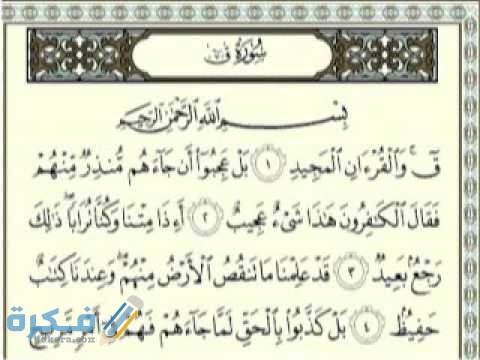 سُورَةُ ق
بِسْمِ ٱللَّهِ ٱلرَّحْمَٰنِ ٱلرَّحِيمِ
قٓ ۚ وَٱلْقُرْءَانِ ٱلْمَجِيدِ ١ بَلْ عَجِبُوٓا۟ أَن جَآءَهُم مُّنذِرٌ مِّنْهُمْ
فَقَالَ ٱلْكَٰفِرُونَ هَٰذَا شَىْءٌ عَجِيبٌ ٢ أَءِذَا مِتْنَا وَكُنَّا تُرَابًا ۖ ذَٰلِكَ
رَجْعٌۢ بَعِيدٌ ٣ قَدْ عَلِمْنَا مَا تَنقُصُ ٱلْأَرْضُ مِنْهُمْ ۖ وَعِندَنَا كِتَٰبٌ
حَفِيظٌۢ ٤ بَلْ كَذَّبُوا۟ بِٱلْحَقِّ لَمَّا جَآءَهُمْ فَهُمْ فِىٓ أَمْرٍ مَّرِيجٍ
فكرة